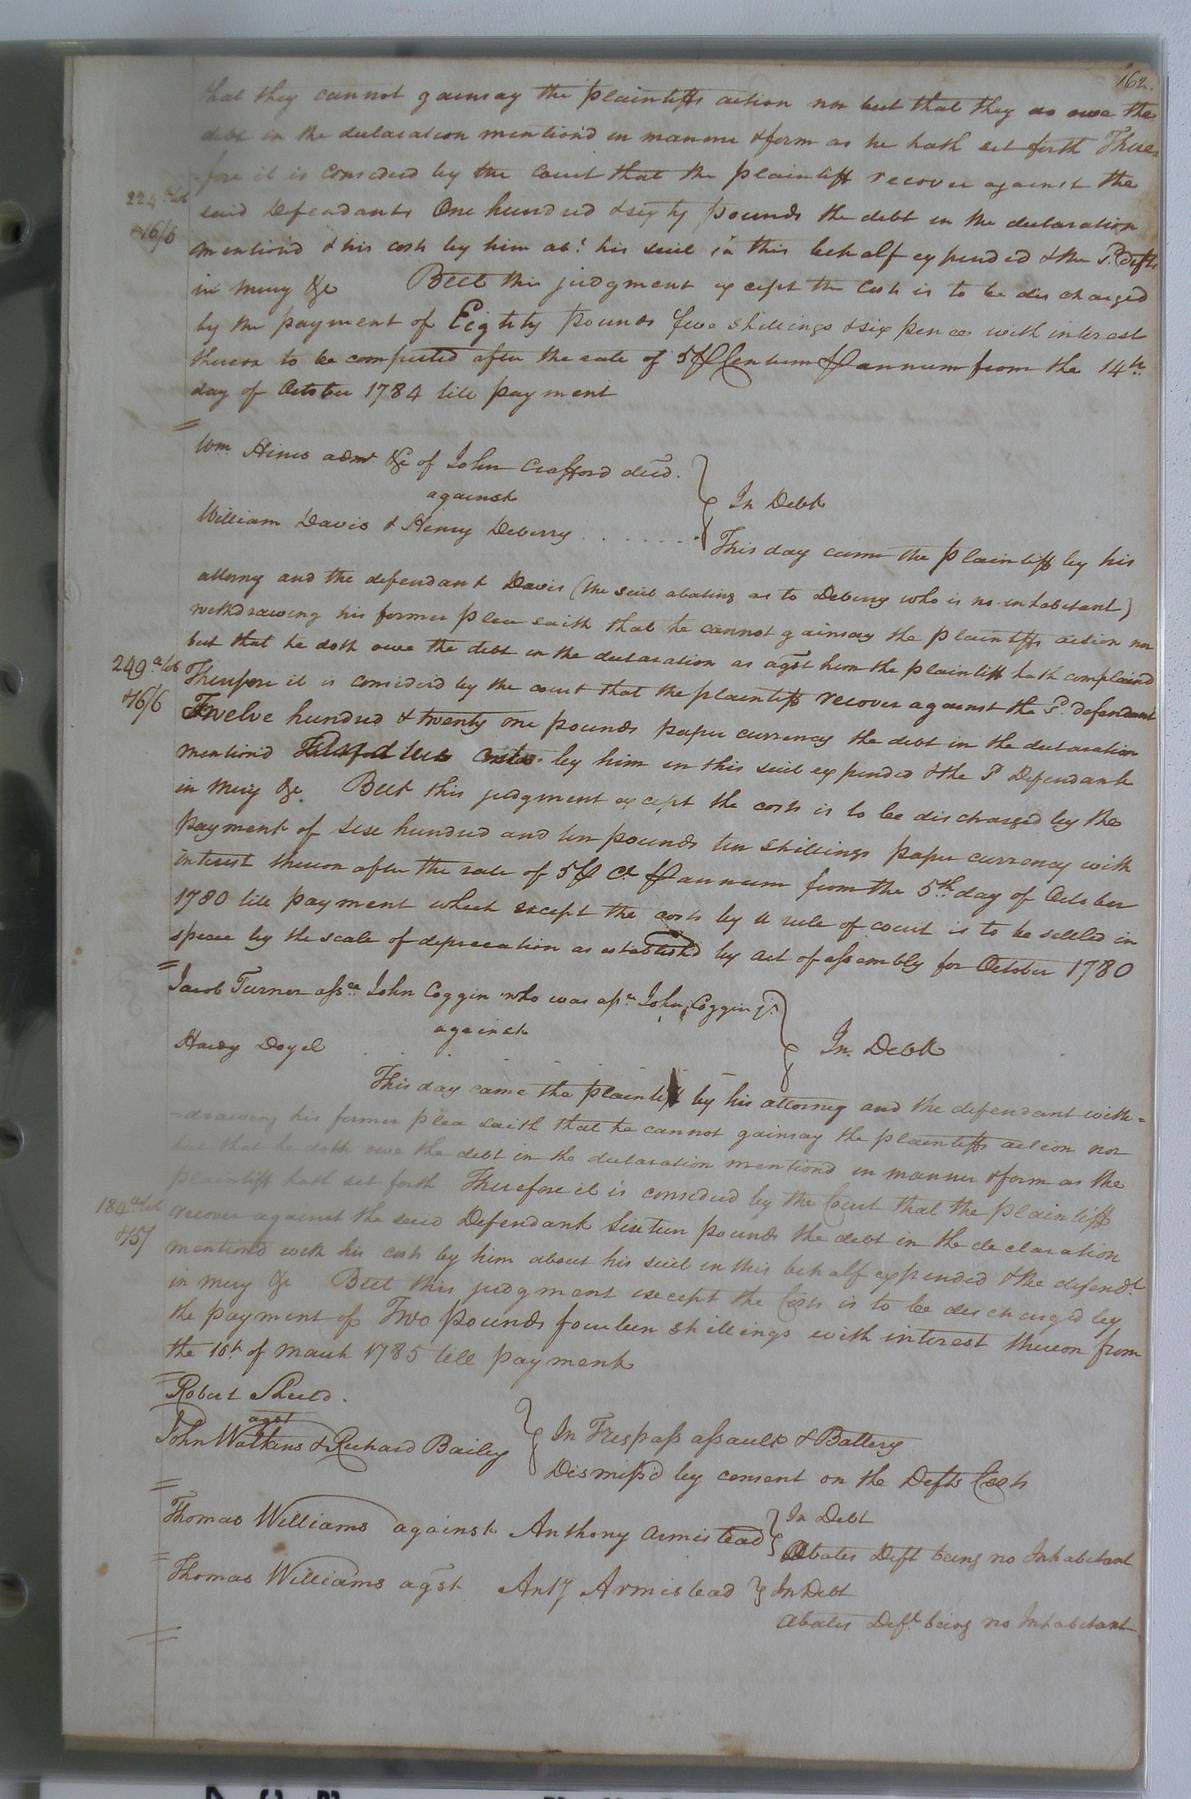 162.
that they cannot gainsay the plaintiffs action nor but that they do owe the
debt in the declaration mention'd in manner & form as he hath set forth There
fore it is considered by the Court that the plaintiff recover against the
said Defendants One hundred & sixty pounds the debt in the declaration
mention'd & his costs by him abt. his suit in this behalf expended & the sd. Defts
in mercy &c But this judgment except the Costs is to be discharged
by the payment of Eighty pounds five shillings & six pence with interest
thereon to be computed after the rate of 5 ⅌ Centum ⅌ annum from the 14th
day of October 1784 till payment
Wm. Hines admr &c of John Crafford decd.
against
William Davis & Henry Deberry
In Debt
This day came the plaintiff by his
attorny and the defendant Davis (the suit abating as to Deberry who is no inhabitant)
withdrawing his former plea saith that he cannot gainsay the plaintiffs action nor
but that he doth owe the debt in the declaration as agst him the plaintiff hath complaind
249
& 16/6
Therefore it is considerd by the court that the plaintiff recover against the sd. defendant
Twelve hundred & twenty one pounds paper currency the debt in the declaration
mention'd costs by him in this suit expended & the sd Defendant
in mercy &c. But this judgment except the costs is to be discharged by the
payment of Six hundred and ten pounds ten shillings paper currency with
interest thereon after the rate of 5 ⅌ Ct ⅌ annum from the 5th day of October
1780 till payment which except the costs by a rule of court is to be settled in
specie by the scale of depreciation as established by act of assembly for October 1780
Jacob Turner assee John Coggin who was assee John Coggin jr.
against
Hardy Doyel
In Debt
This day came the plaintiff by his attorney and the defendant with=
-drawing his former plea saith that he cannot gainsay the plaintiffs action nor
but that he doth owe the debt in the declaration mentiond in manner & form as the
plaintiff hath set forth Therefore it is considerd by the Court that the plaintiff
recover against the said Defendant Sixteen pounds the debt in the declaration
mentiond with his costs by him about his suit in this behalf expended & the defendt
in mercy &c But this judgment except the Costs is to be discharged by
the payment of Two pounds fourteen shillings with interest thereon from
the of March 1785 till payment
Robert
agst
John Watkins & Richard Bailey
In Trespass assault & Battery
Dismiss'd by consent on the Defts Costs
Thomas Williams against Anthony Armistead
In Debt
Abates Deft being no Inhabitant
Thomas Williams agst Anty Armistead
In Debt
Abates Deft. being no Inhabitant